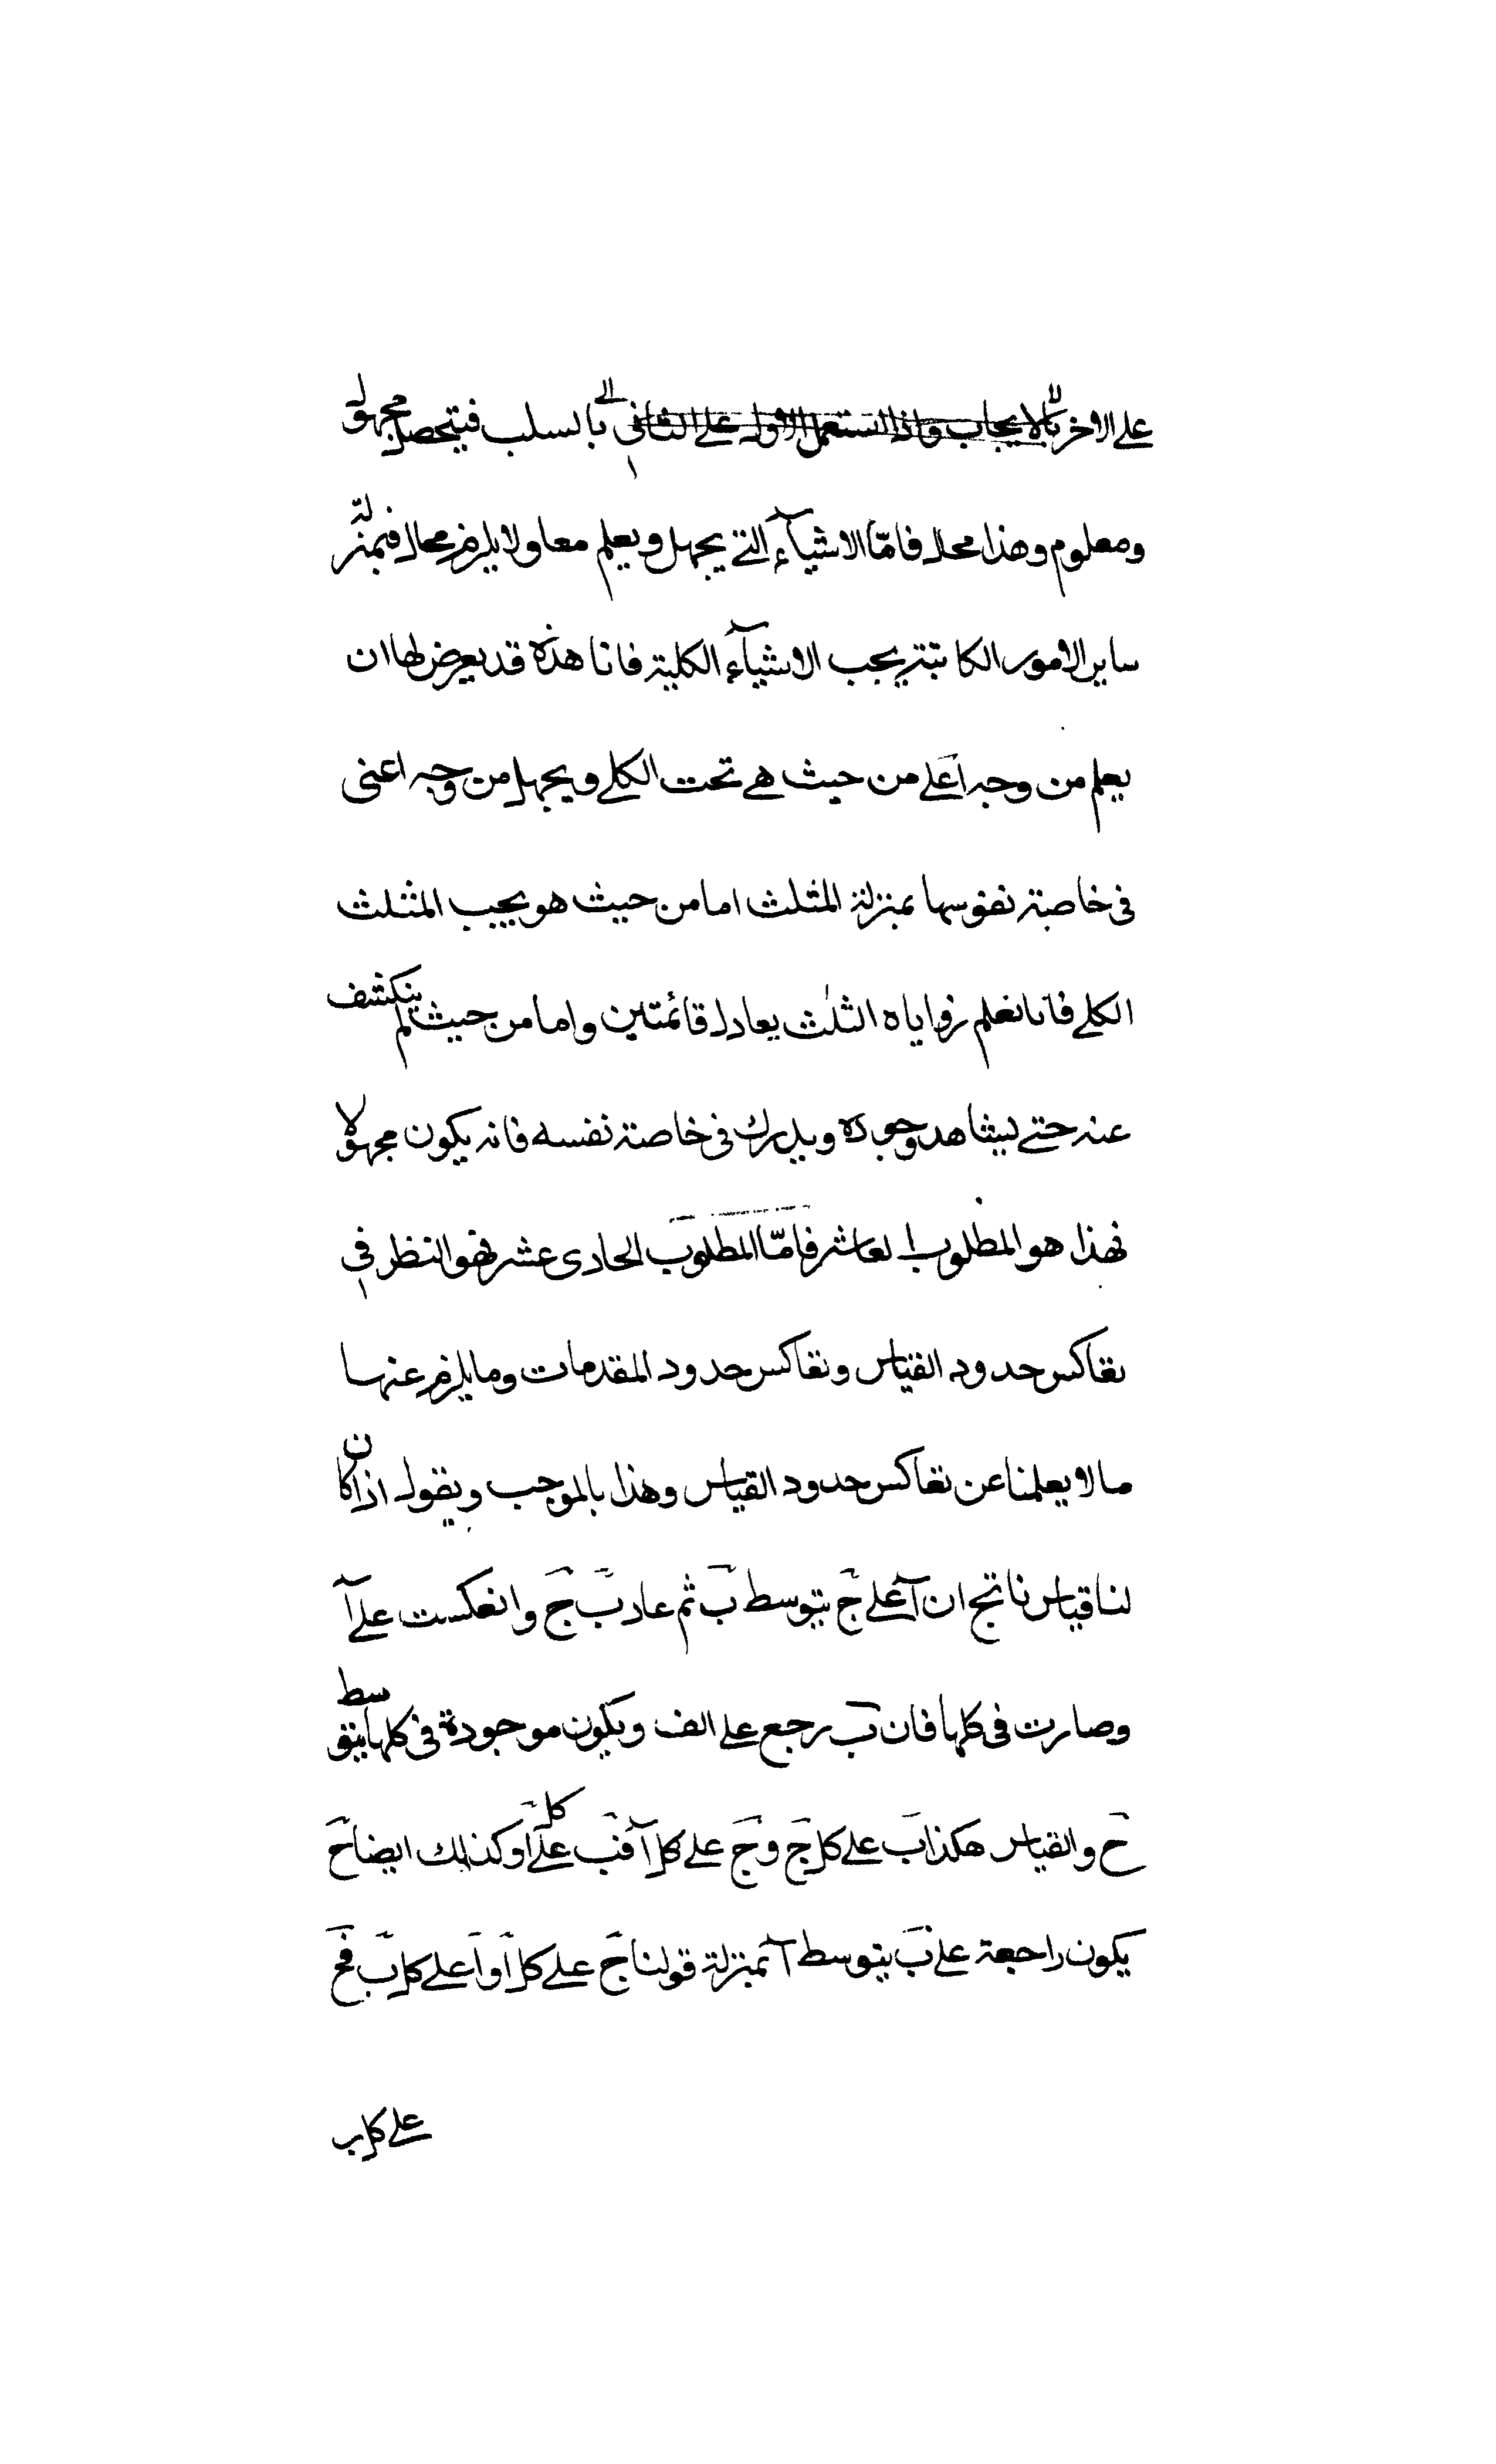 على الاخر بالايجاب واذا استعمل الاول على الثانى بالسلب فيتحصل مجهول
ومعلوم وهذا محال فامّا الاشيآء التى يجهل ويعلم معا ولا يلزم محال فبمنزلة
ساير الامور الكاتبة يجب الاشيآء الكلية فانا هذه قد يعرض لها ان
يعلم من وجه اعلى من حيث هى تحت الكلى ويجهل من وجه اعنى
فى خاصة نفوسها بمنزلة المثلث اما من حيث هو يجيب المثلث
الكلى فانا نعلم زواياه الثلث يعادل قائمتين واما من حيث لم ينكشف
عنه حتى يشاهد وجوده ويدرك فى خاصة نفسه فانه يكون مجهولا
فهذا هو المطلوب العاشر فامّا المطلوب الحادى عشر فهو النظر فى
تعاكس حدود القياس وتعاكس حدود المقدمات وما يلزم عنها
مالا يعلمنا عن تعاكس حدود القياس وهذا بالموجب ويقول اذا كان
لنا قياس ناتج ان آ على ج بتوسط ب ثم عاد ب ج وانعكست على آ
وصارت فى كلها فان ب رجع على الف ويكون موجودة فى كلها بتوسط
ح والقياس هكذا ب على كل ج وج على كل آ فب على كل ا وكذلك ايضا ح
يكون راجعة على ب بتوسط آ بمنزلة قولنا ج على كل ا وا على كل ب فج
على كل ب